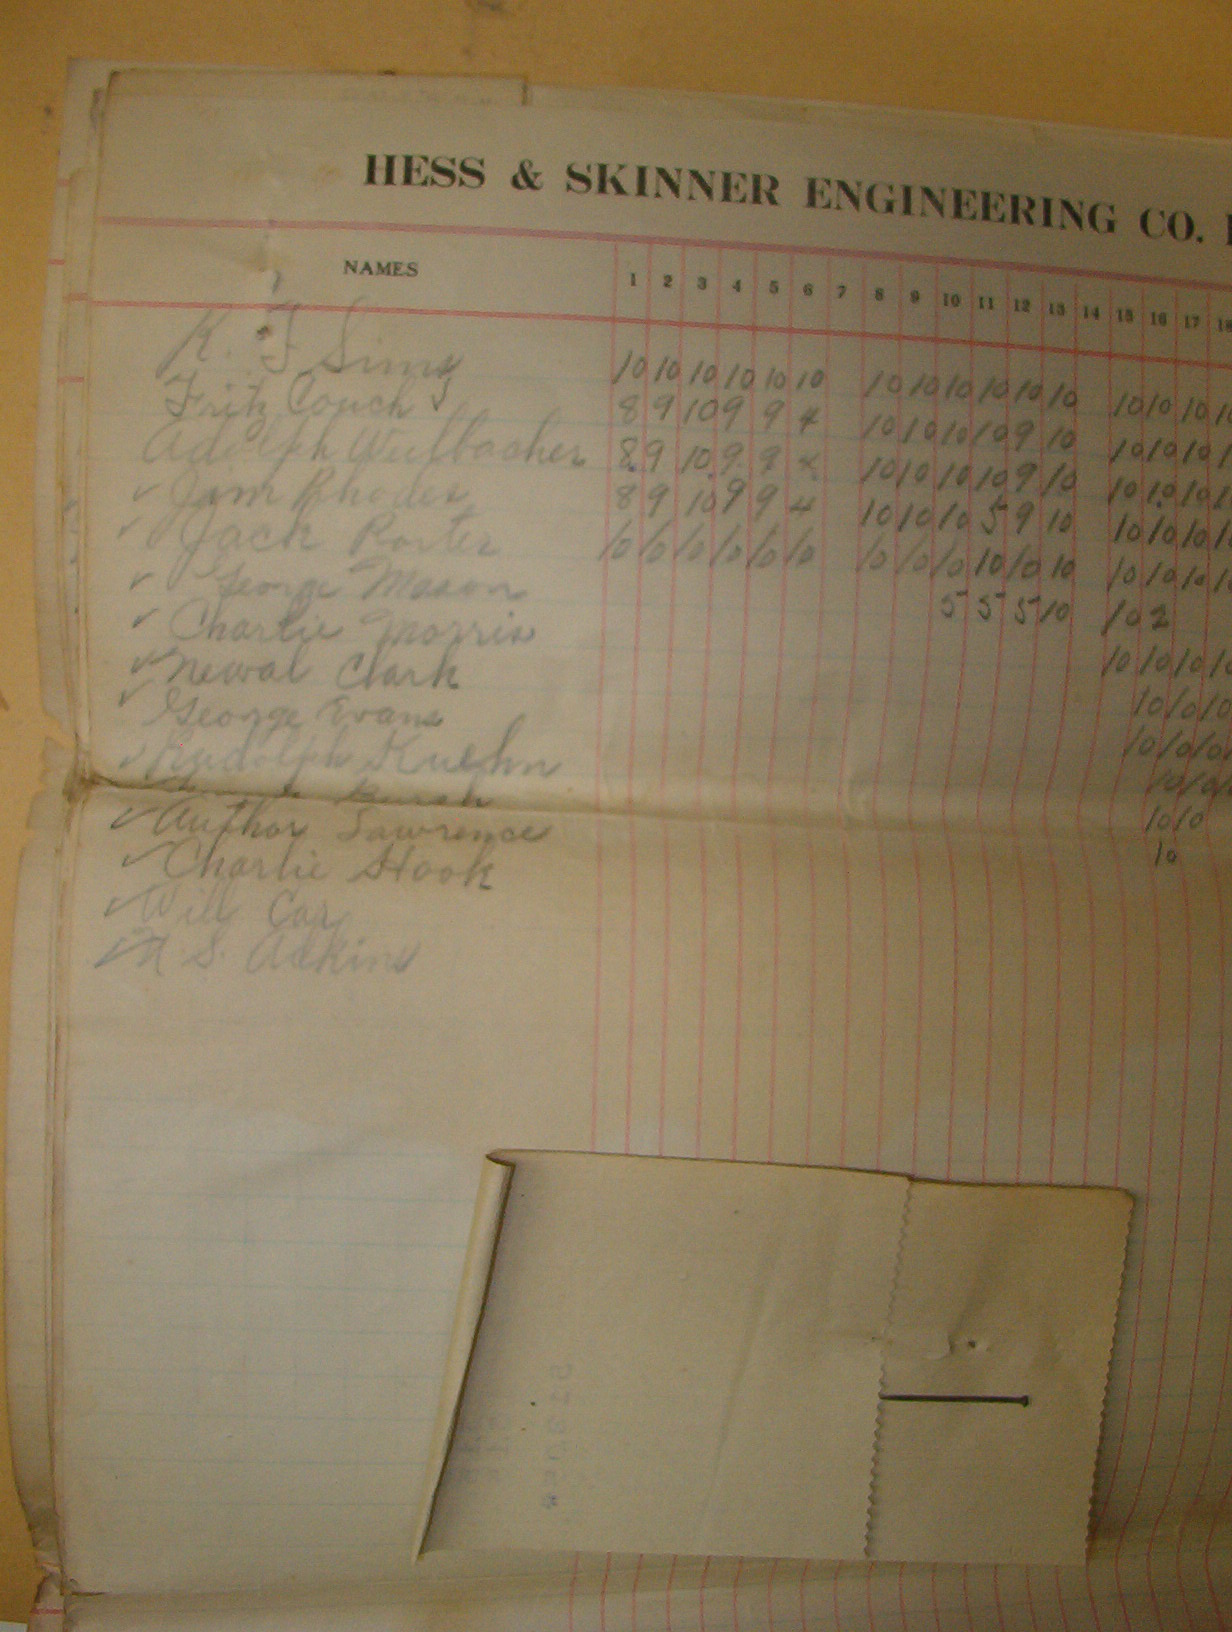 HESS & SKINNER ENGINEERING CO.
NAMES 1 2 3 4 5 6 7 8 9 10 11 12 13 14 15 16 17 18
K. F Sims 10 10 10 10 10 10 10 10 10 10 10 10 10 10 10
Fritz Couch 8 9 10 9 9 4 10 10 10 10 9 10 10 10 10
Adolph Wulbacher 8 9 10 9 9 4 10 10 10 10 9 10 10 10 10
✓ Jim Rhodes 8 9 10 9 9 4 10 10 10 5 9 10 10 10 10
✓ Jack Porter 10 10 10 10 10 10 10 10 10 10 10 10 10 10 10
✓ George Mason 5 5 5 10 10 2
✓ Charlie Morris 10 10 10
✓ Newal Clark 10 10 10
✓ George Evans 10 10 10
✓ Rudolph Kuehn 10 10
Bush 10 10
✓ Author Lawrence 10
✓ Charlie Hook
✓ Will Car
✓ S. Adkins